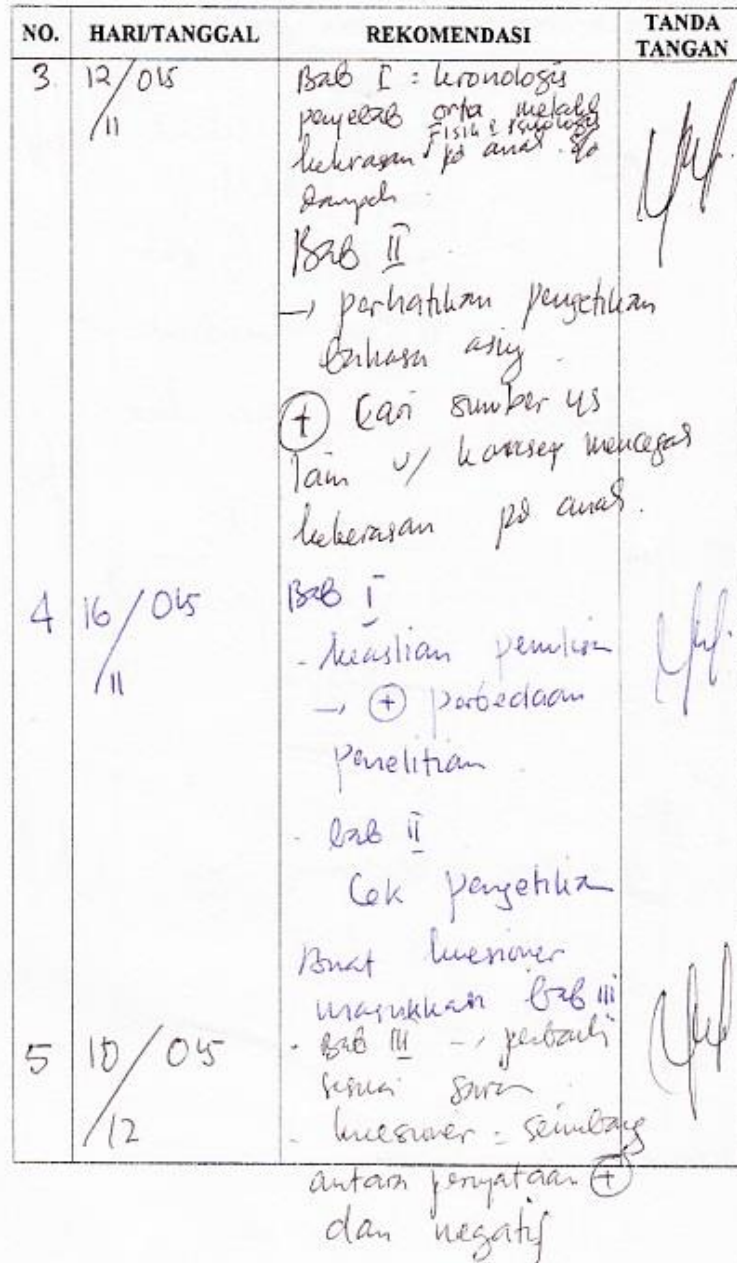 NO. HARI/TANGGAL REKOMENDASI TANDA TANGAN
3 12/11 015 Bab I : kronologis
penyebab orta
Fisik & Psikologis
kekerasan pd anak
dampak
Bab II
→ perhatikan pengetikan
bahasa asing
+ Cari sumber yg
lain u/ konsep mencegah
kekerasan pd anak.
4 16/11 015 Bab I
- keaslian penulisan
→ + perbedaan
penelitian
- bab II
Cek pengetikan
Buat kuesioner
masukkan bab III
5 10/12 015 - Bab III → perbaiki
sesuai saran
- kuesioner = seimbang
antara pernyataan +
dan negatif